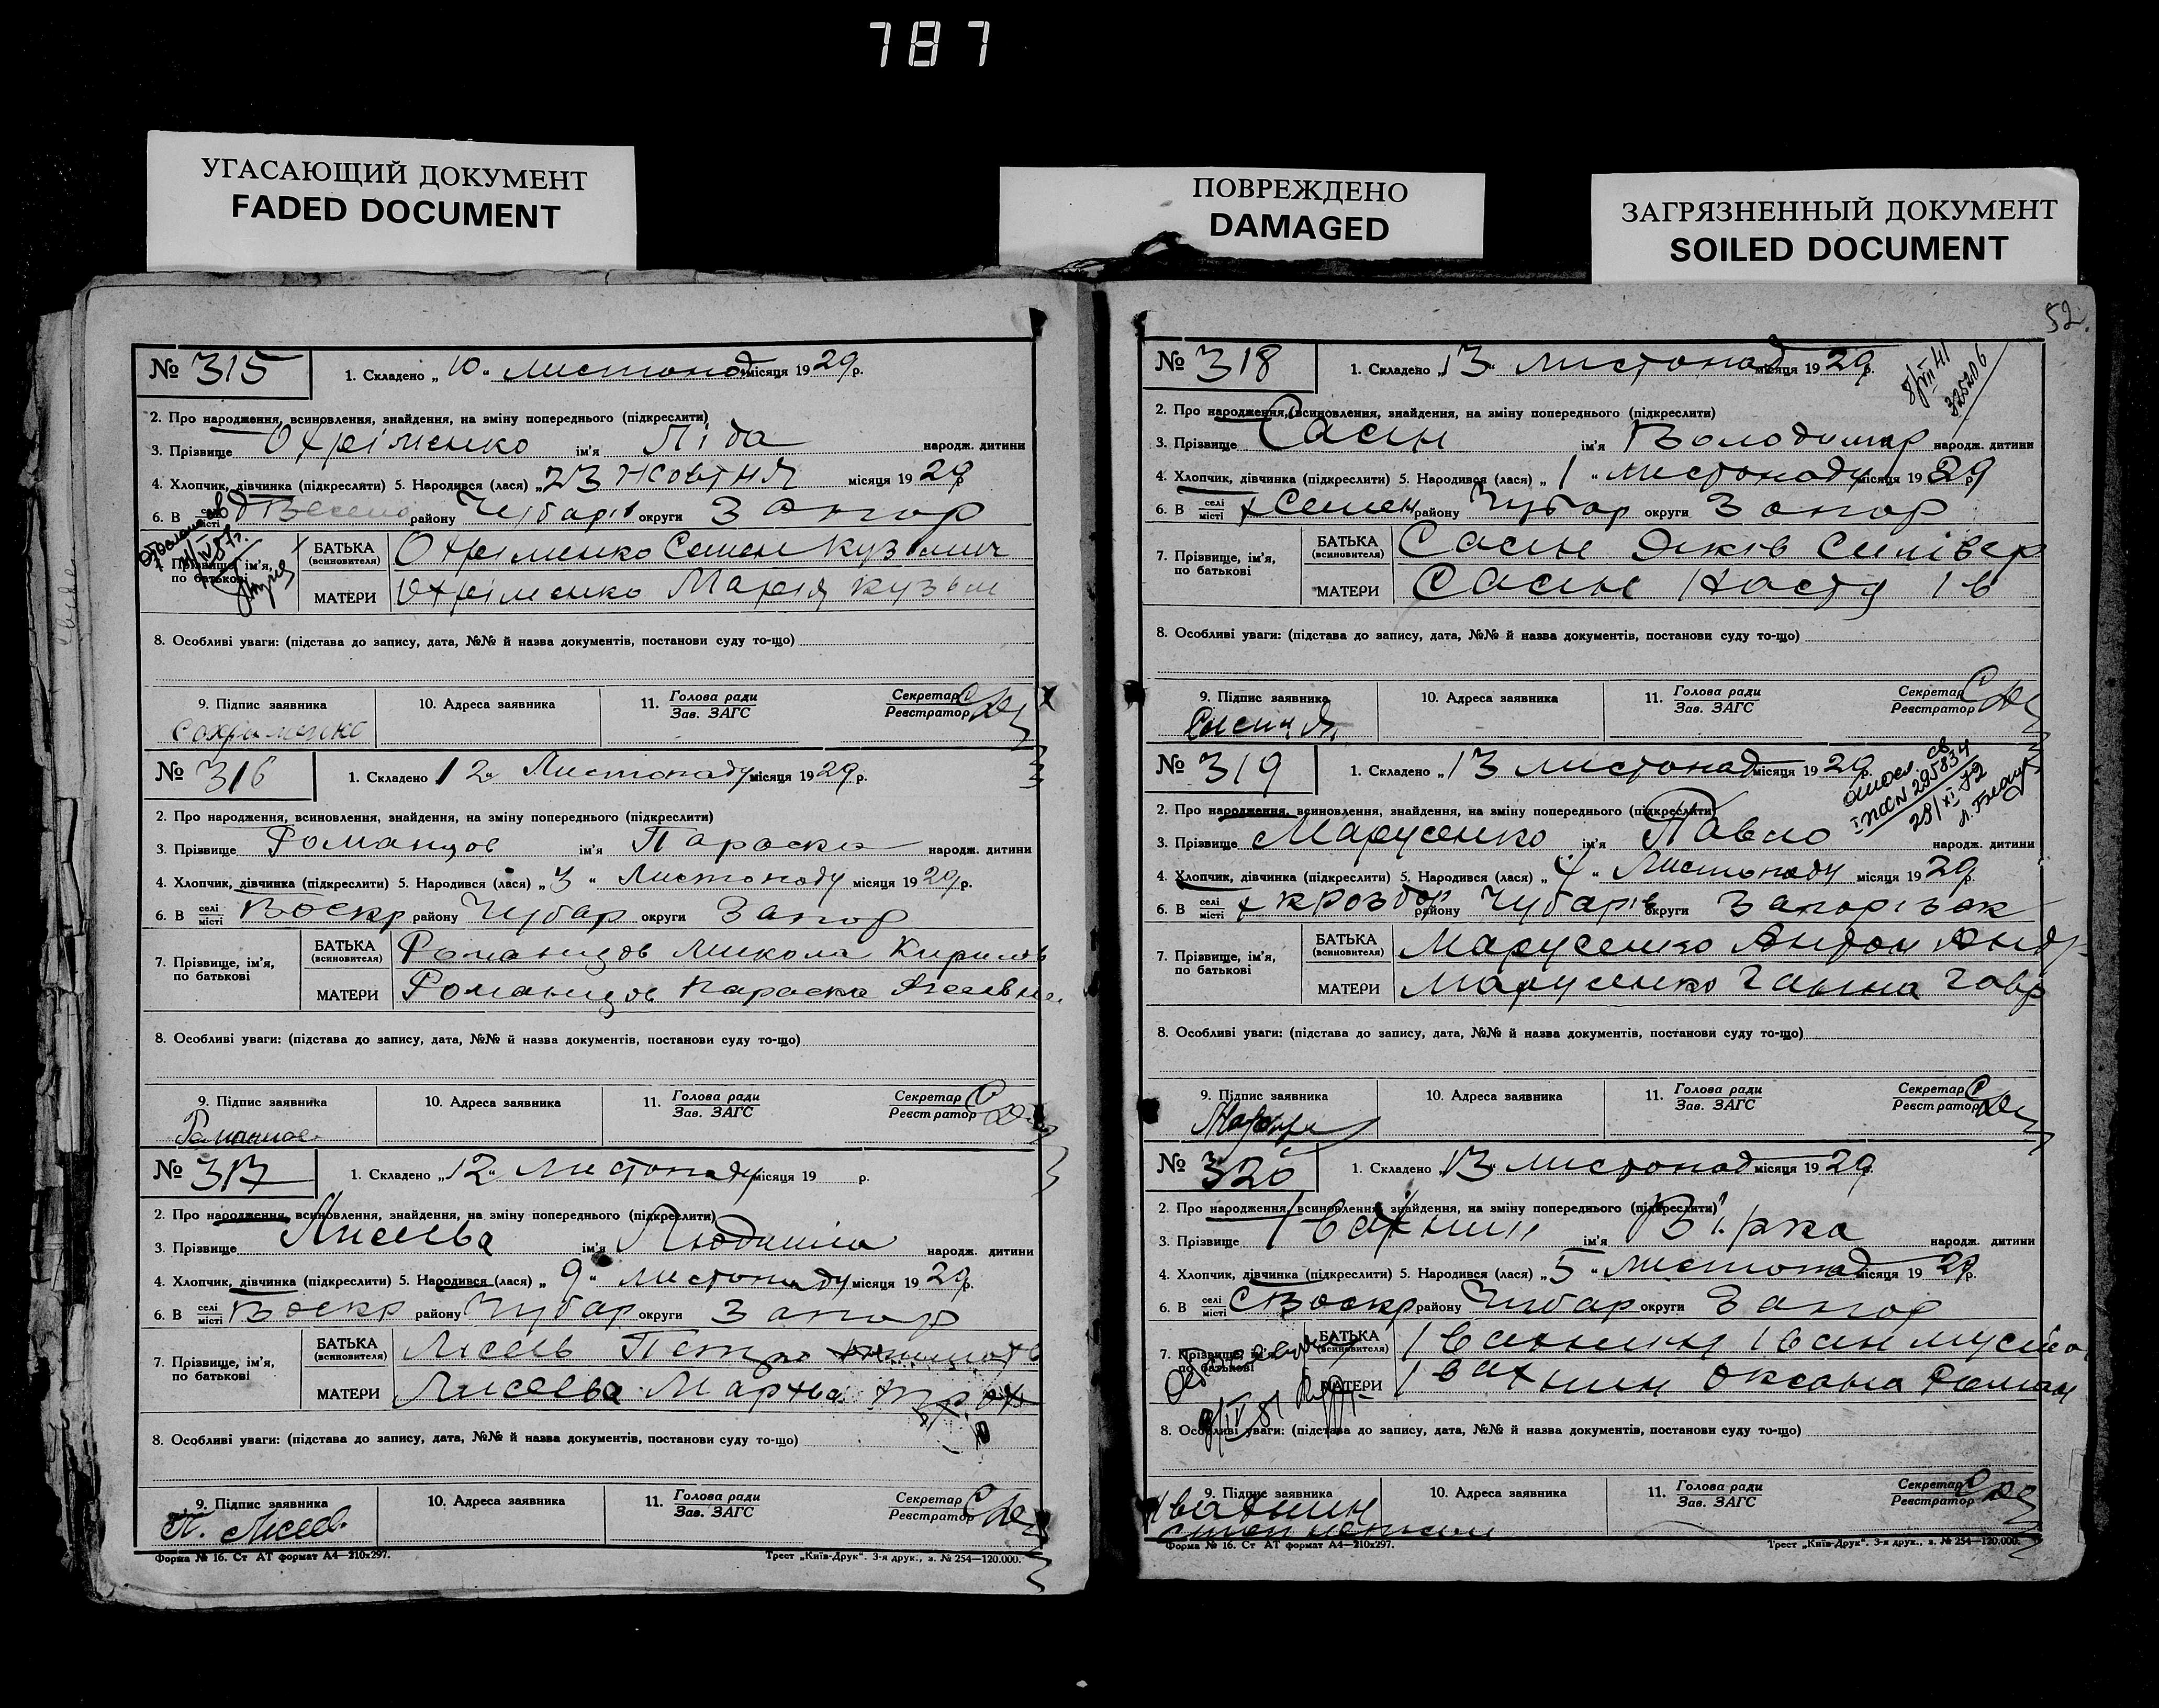 787
УГАСАЮЩИЙ ДОКУМЕНТ
FADED DOCUMENT
ПОВРЕЖДЕНО
DAMAGED
ЗАГРЯЗНЕННЫЙ ДОКУМЕНТ
SOILED DOCUMENT
№ 315 1. Складено „10“ листопад місяця 1929 р.
2. Про народження, всиновлення, знайдення, на зміну попереднього (підкреслити)
3. Прізвище Охріменко ім'я Ліда народж. дитини
4. Хлопчик, дівчинка (підкреслити) 5. Народився (лася) „23 жовтня місяця 1929 р.
6. В селі місті Весело району Чубарів округи Запор
7. Прізвище, ім'я, по батькові
БАТЬКА (всиновителя) Охріменко Семен Кузьмич
МАТЕРИ Охріменко Марія Кузьм
8. Особливі уваги: (підстава до запису, дата, №№ й назва документів, постанови суду то-що)
9. Підпис заявника 10. Адреса заявника 11. Голова ради Зав. ЗАГС Секретар Реєстратор
№ 316 1. Складено 12“ Листопаду місяця 1929 р.
2. Про народження, всиновлення, знайдення, на зміну попереднього (підкреслити)
3. Прізвище Романцов ім'я Параска народж. дитини
4. Хлопчик, дівчинка (підкреслити) 5. Народився (лася) „3“ Листопаду місяця 1929 р.
6. В селі місті Воскр району Чубар округи Запор
7. Прізвище, ім'я, по батькові
БАТЬКА (всиновителя) Романцов Микола Кирилов
МАТЕРИ Романцов Параска
8. Особливі уваги: (підстава до запису, дата, №№ й назва документів, постанови суду то-що)
9. Підпис заявника 10. Адреса заявника 11. Голова ради Зав. ЗАГС Секретар Реєстратор
№ 317 1. Складено „12“ Листопаду місяця 19 р.
2. Про народження, всиновлення, знайдення, на зміну попереднього (підкреслити)
3. Прізвище Лисєєва ім'я Людмила народж. дитини
4. Хлопчик, дівчинка (підкреслити) 5. Народився (лася) „9“ листопаду місяця 1929 р.
6. В селі місті Воскр району Чубар округи Запор
7. Прізвище, ім'я, по батькові
БАТЬКА (всиновителя) Петро
МАТЕРИ Лисєєва Мархва
8. Особливі уваги: (підстава до запису, дата, №№ й назва документів, постанови суду то-що)
9. Підпис заявника 10. Адреса заявника 11. Голова ради Зав. ЗАГС Секретар Реєстратор
Форма № 16. Ст АТ формат А4—210х297. Трест „Київ-Друк“. 3-я друк., з. № 254—120.000.
52.
№ 318 1. Складено „13“ листопад місяця 1929 р.
325206
2. Про народження, всиновлення, знайдення, на зміну попереднього (підкреслити)
3. Прізвище Сасин ім'я Володимир народж. дитини
4. Хлопчик, дівчинка (підкреслити) 5. Народився (лася) „1“ листопаду місяця 1929 р.
6. В селі місті х Семен району Чубар округи Запор
7. Прізвище, ім'я, по батькові
БАТЬКА (всиновителя) Сасин Яків Силівер
МАТЕРИ Сасин Настя Ів
8. Особливі уваги: (підстава до запису, дата, №№ й назва документів, постанови суду то-що)
9. Підпис заявника 10. Адреса заявника 11. Голова ради Зав. ЗАГС Секретар Реєстратор
№ 319 1. Складено „13 листопад місяця 1929
2. Про народження, всиновлення, знайдення, на зміну попереднього (підкреслити)
3. Прізвище Марусенко ім'я Павло народж. дитини
4. Хлопчик, дівчинка (підкреслити) 5. Народився (лася) „4“ Листопаду місяця 1929 р.
6. В селі місті х Крозбор району Чубарів округи Запорізок
7. Прізвище, ім'я, по батькові
БАТЬКА (всиновителя) Марусенко Андрон Андр
МАТЕРИ Марусенко Ганна Гавр
8. Особливі уваги: (підстава до запису, дата, №№ й назва документів, постанови суду то-що)
9. Підпис заявника 10. Адреса заявника 11. Голова ради Зав. ЗАГС Секретар Реєстратор
№ 320 1. Складено „13“ листопад місяця 1929 р.
2. Про народження, всиновлення, знайдення, на зміну попереднього (підкреслити)
3. Прізвище Івахнин ім'я Вірка народж. дитини
4. Хлопчик, дівчинка (підкреслити) 5. Народився (лася) „5“ листопад місяця 1929 р.
6. В селі місті С Воскр району Чубар округи Запор
7. Прізвище, ім'я, по батькові
БАТЬКА (всиновителя) Івахнин Іван
МАТЕРИ Івахнин Оксана Роман
8. Особливі уваги: (підстава до запису, дата, №№ й назва документів, постанови суду то-що)
9. Підпис заявника 10. Адреса заявника 11. Голова ради Зав. ЗАГС Секретар Реєстратор
Івахнин
Форма № 16. Ст АТ формат А4—210х297. Трест „Київ-Друк“. 3-я друк., з. № 254—120.000.